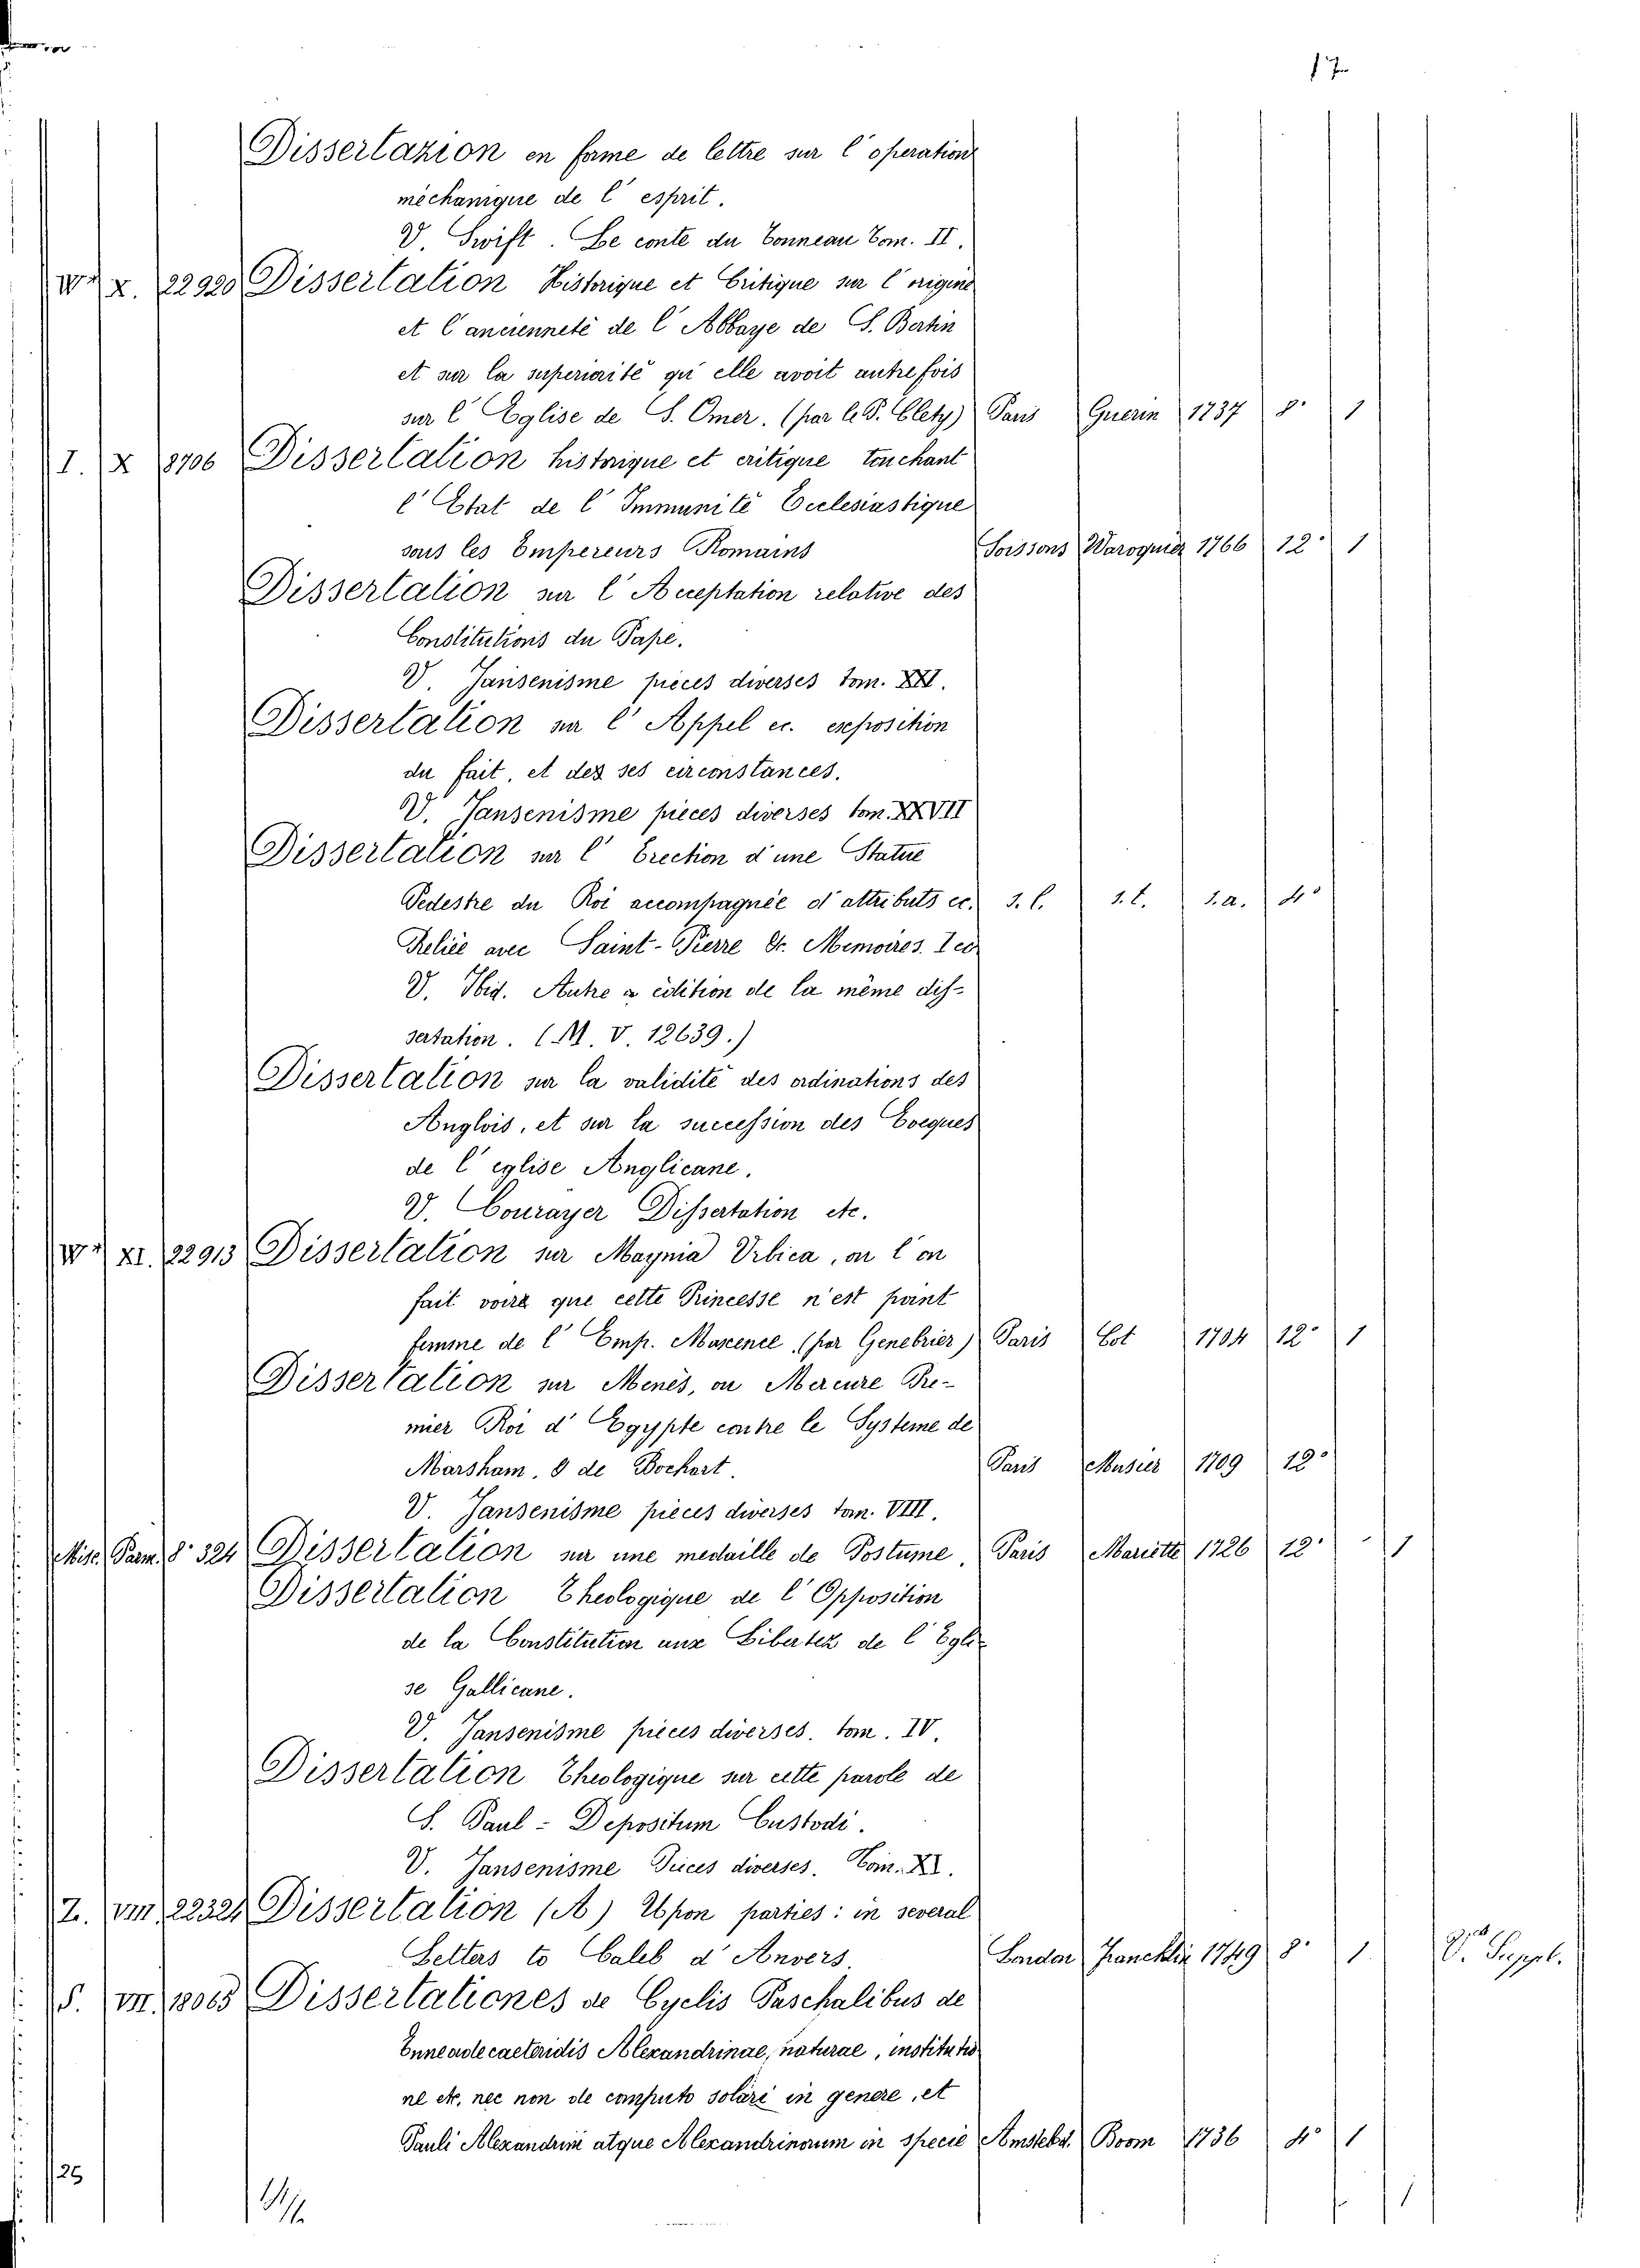 17
Dissertazion en forme de lettre sur l'operation
méchanique de l'esprit.
V. Swift. Le conte du Tonneau Tom. II.
X. 22920 Dissertation Historique et Critique sur l'origine
et l'ancienneté de l'Abbaye de S. Bertin
et sur la superiorité qu'elle avoit autrefois
sur l'Eglise de S. Omer. (par le P. Clety) Paris Guerin 1737 8° 1
I. X 8706 Dissertation historique et critique touchant
l'Etat de l'Immunité Ecclesiastique
sous les Empereurs Romains Soissons Waroquier 1766 12° 1
Dissertation sur l'Acceptation relative des
Constitutions du Pape.
V. Jansenisme pièces diverses tom. XXI.
Dissertation sur l'Appel ec. exposition
du fait, et des ses circonstances.
V. Jansenisme pièces diverses tom. XXVII
Dissertation sur l'Erection d'une Statue
Pedestre du Roi accompagnée d'attributs ec. s.l. s.t. s.a. 4°
Reliée avec Saint-Pierre Memoires. I
V. Ibid. Autre edition de la même dis-
sertation. (M. V 12639.)
Dissertation sur la validité des ordinations des
Anglois, et sur la succession des Eveques
de l'eglise Anglicane.
V. Courayer Dissertation etc.
XI. 22913 Dissertation sur Magnia Urbica, ou l'on
fait voir que cette Princesse n'est point
femme de l'Emp. Maxence (par Genebrier) Paris Cot 1704 12° 1
Dissertation sur Menès, ou Mercure Pre-
mier Roi d'Egypte contre le Systeme de
Marsham, & de Bochart. Paris Musier 1709 12°
V. Jansenisme pièces diverses tom. VIII.
Misc. Parm. 8° 324 Dissertation sur une medaille de Postume. Paris Mariette 1726 12° 1
Dissertation Theologique de l'Opposition
de la Constitution aux Libertez de l'Egli-
se Gallicane.
V. Jansenisme pièces diverses. tom. IV.
Dissertation Theologique sur cette parole de
S. Paul - Depositum Custodi.
V. Jansenisme Pièces diverses. Tom. XI.
Z. VIII 22324 Dissertation (A) Upon parties: in several
Letters to Caleb d'Anvers. London Francklin 1749 8° 1 V. Suppl.
S. VII. 18065 Dissertationes de Cyclis Paschalibus de
Enneadecaeteridis Alexandrinae, naturae, institutio
ne etc. nec non de computo solari in genere, et
Pauli Alexandrini atque Alexandrinorum in specie Amstelod. Boom 1736 4° 1
25
1